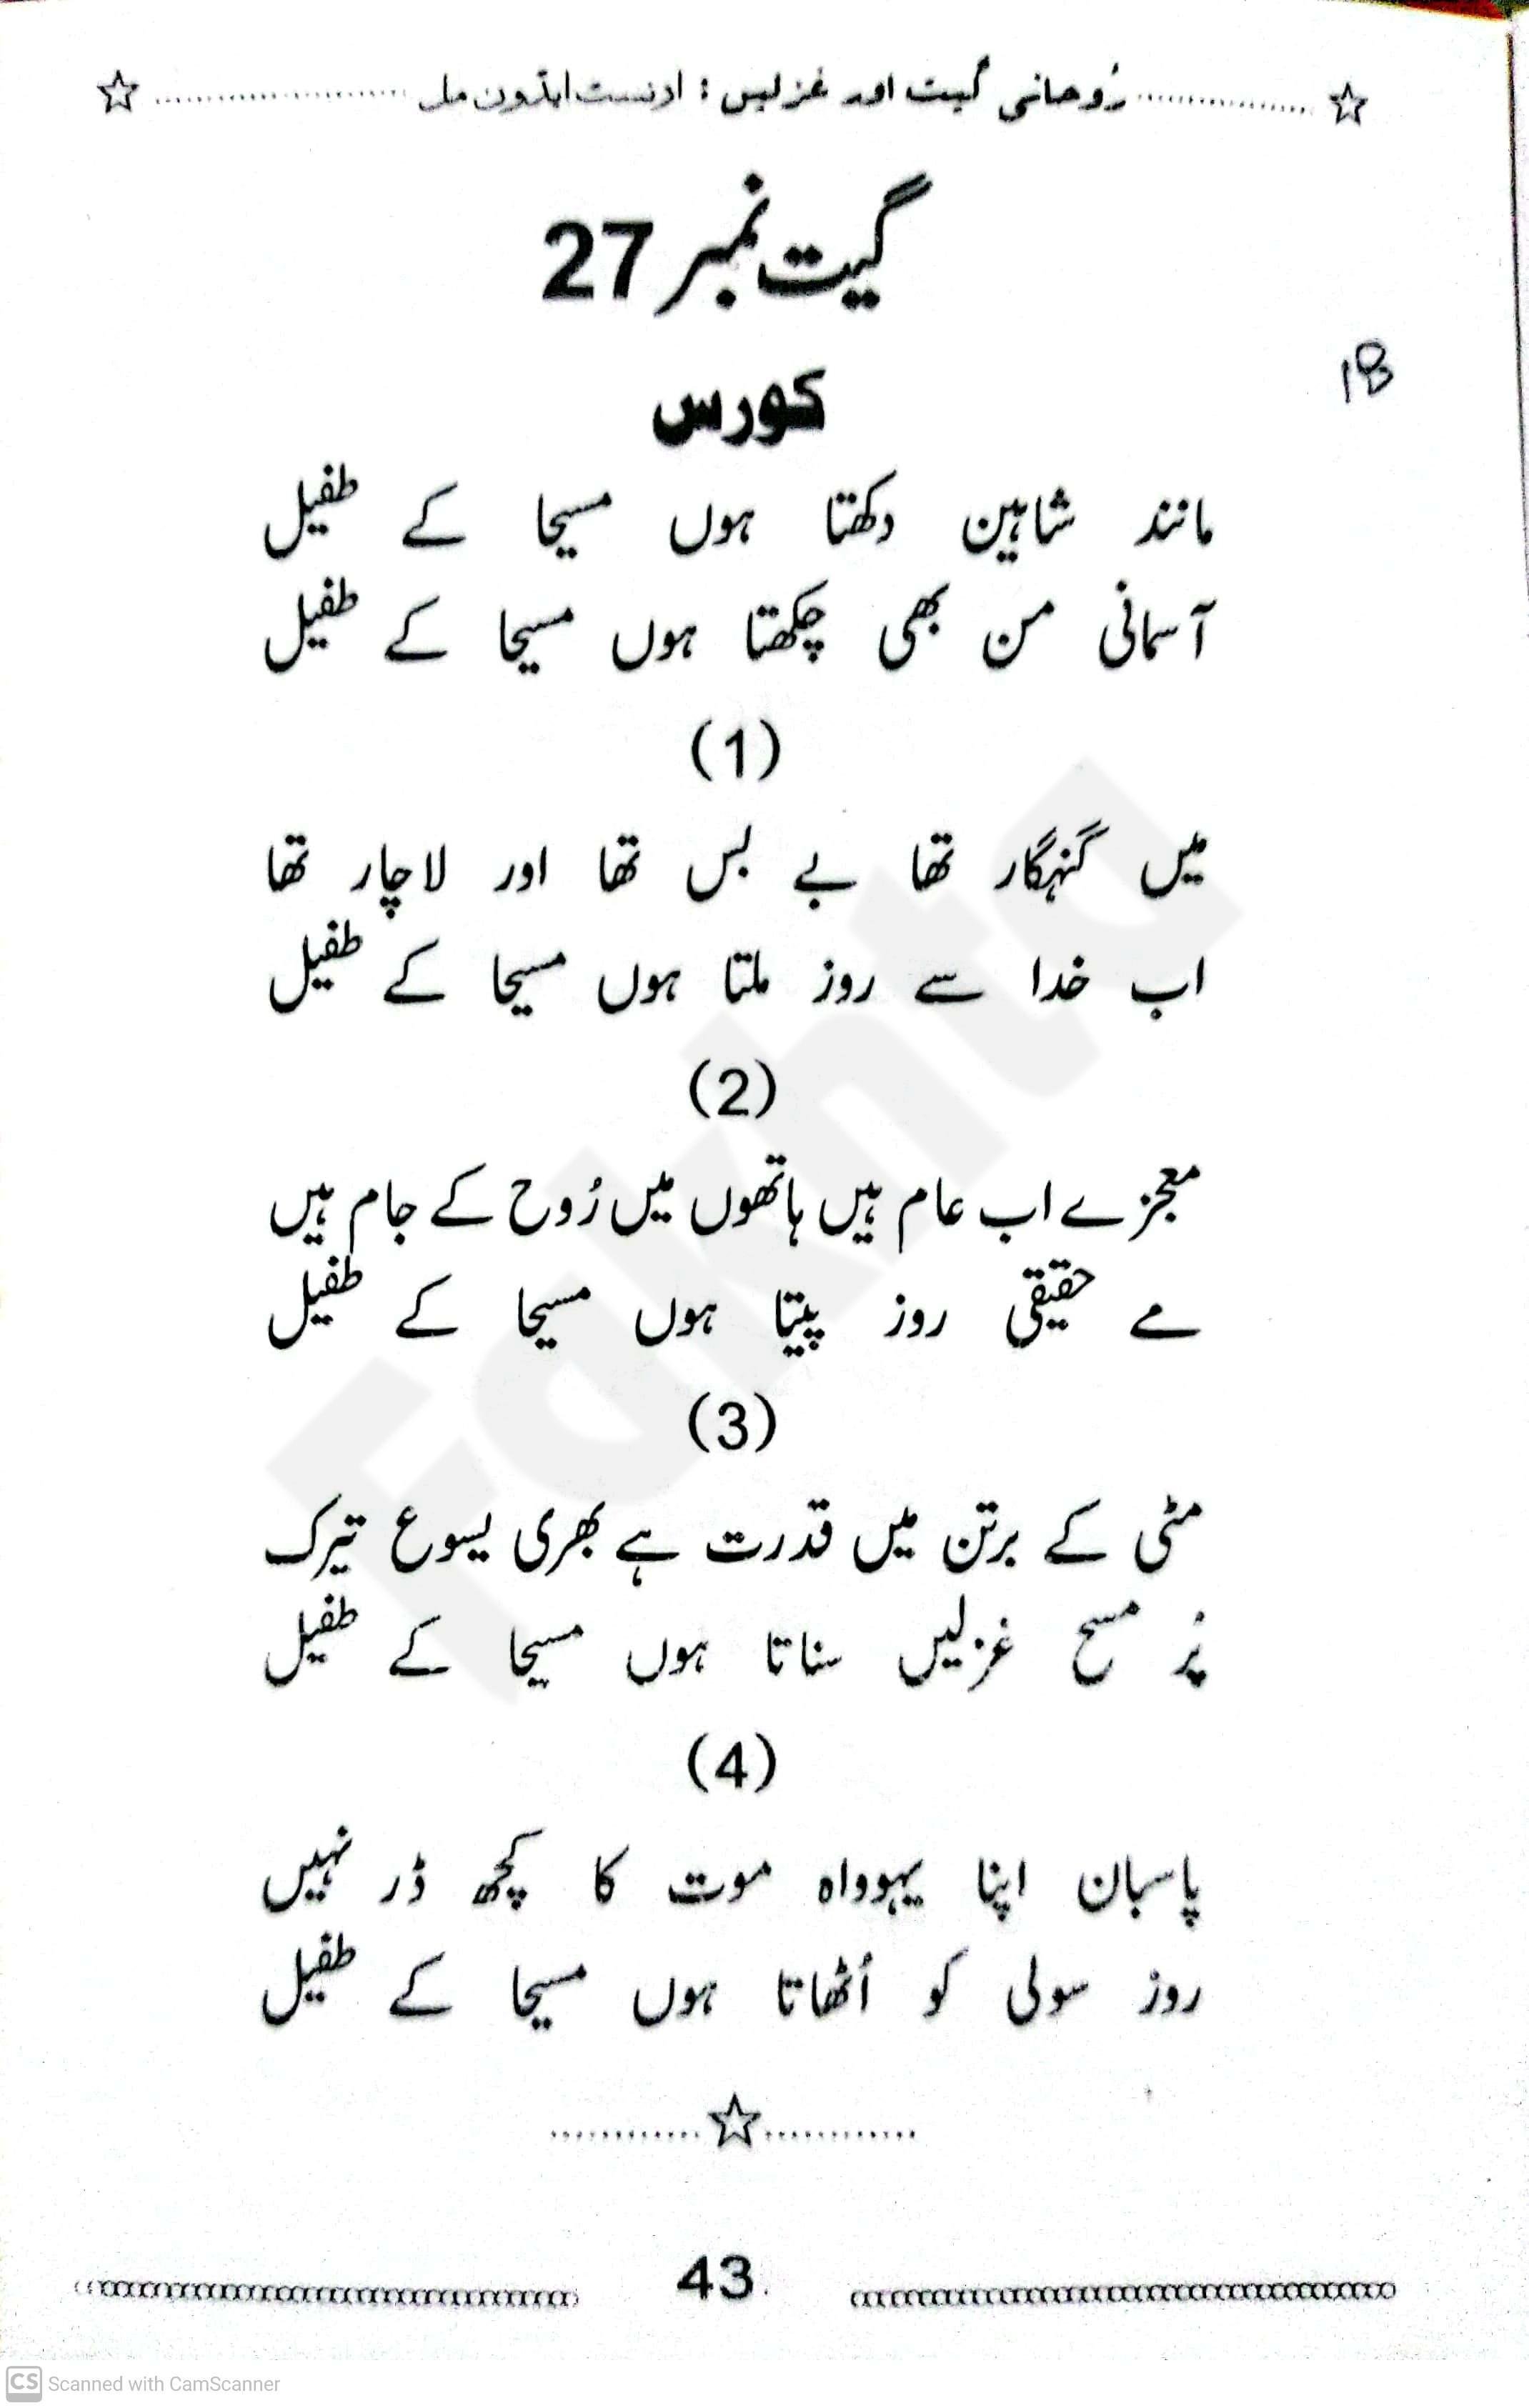 رُوحانی گیت اور غزلیں : ارنسٹ ایڈون مل
گیت نمبر 27
18
کورس
مانند شاہین دکھتا ہوں مسیحا کے طفیل
آسمانی من بھی چکھتا ہوں مسیحا کے طفیل
(1)
میں گنہگار تھا بے بس تھا اور لاچار تھا
اب خدا سے روز ملتا ہوں مسیحا کے طفیل
(2)
معجزے اب عام ہیں ہاتھوں میں رُوح کے جام ہیں
مے حقیقی روز پیتا ہوں مسیحا کے طفیل
(3)
مٹی کے برتن میں قدرت ہے بھری یسوع تیرک
پُر مسح غزلیں سناتا ہوں مسیحا کے طفیل
(4)
پاسبان اپنا یہوواہ موت کا کچھ ڈر نہیں
روز سولی کو اُٹھاتا ہوں مسیحا کے طفیل
43
Fakhta
CS Scanned with CamScanner